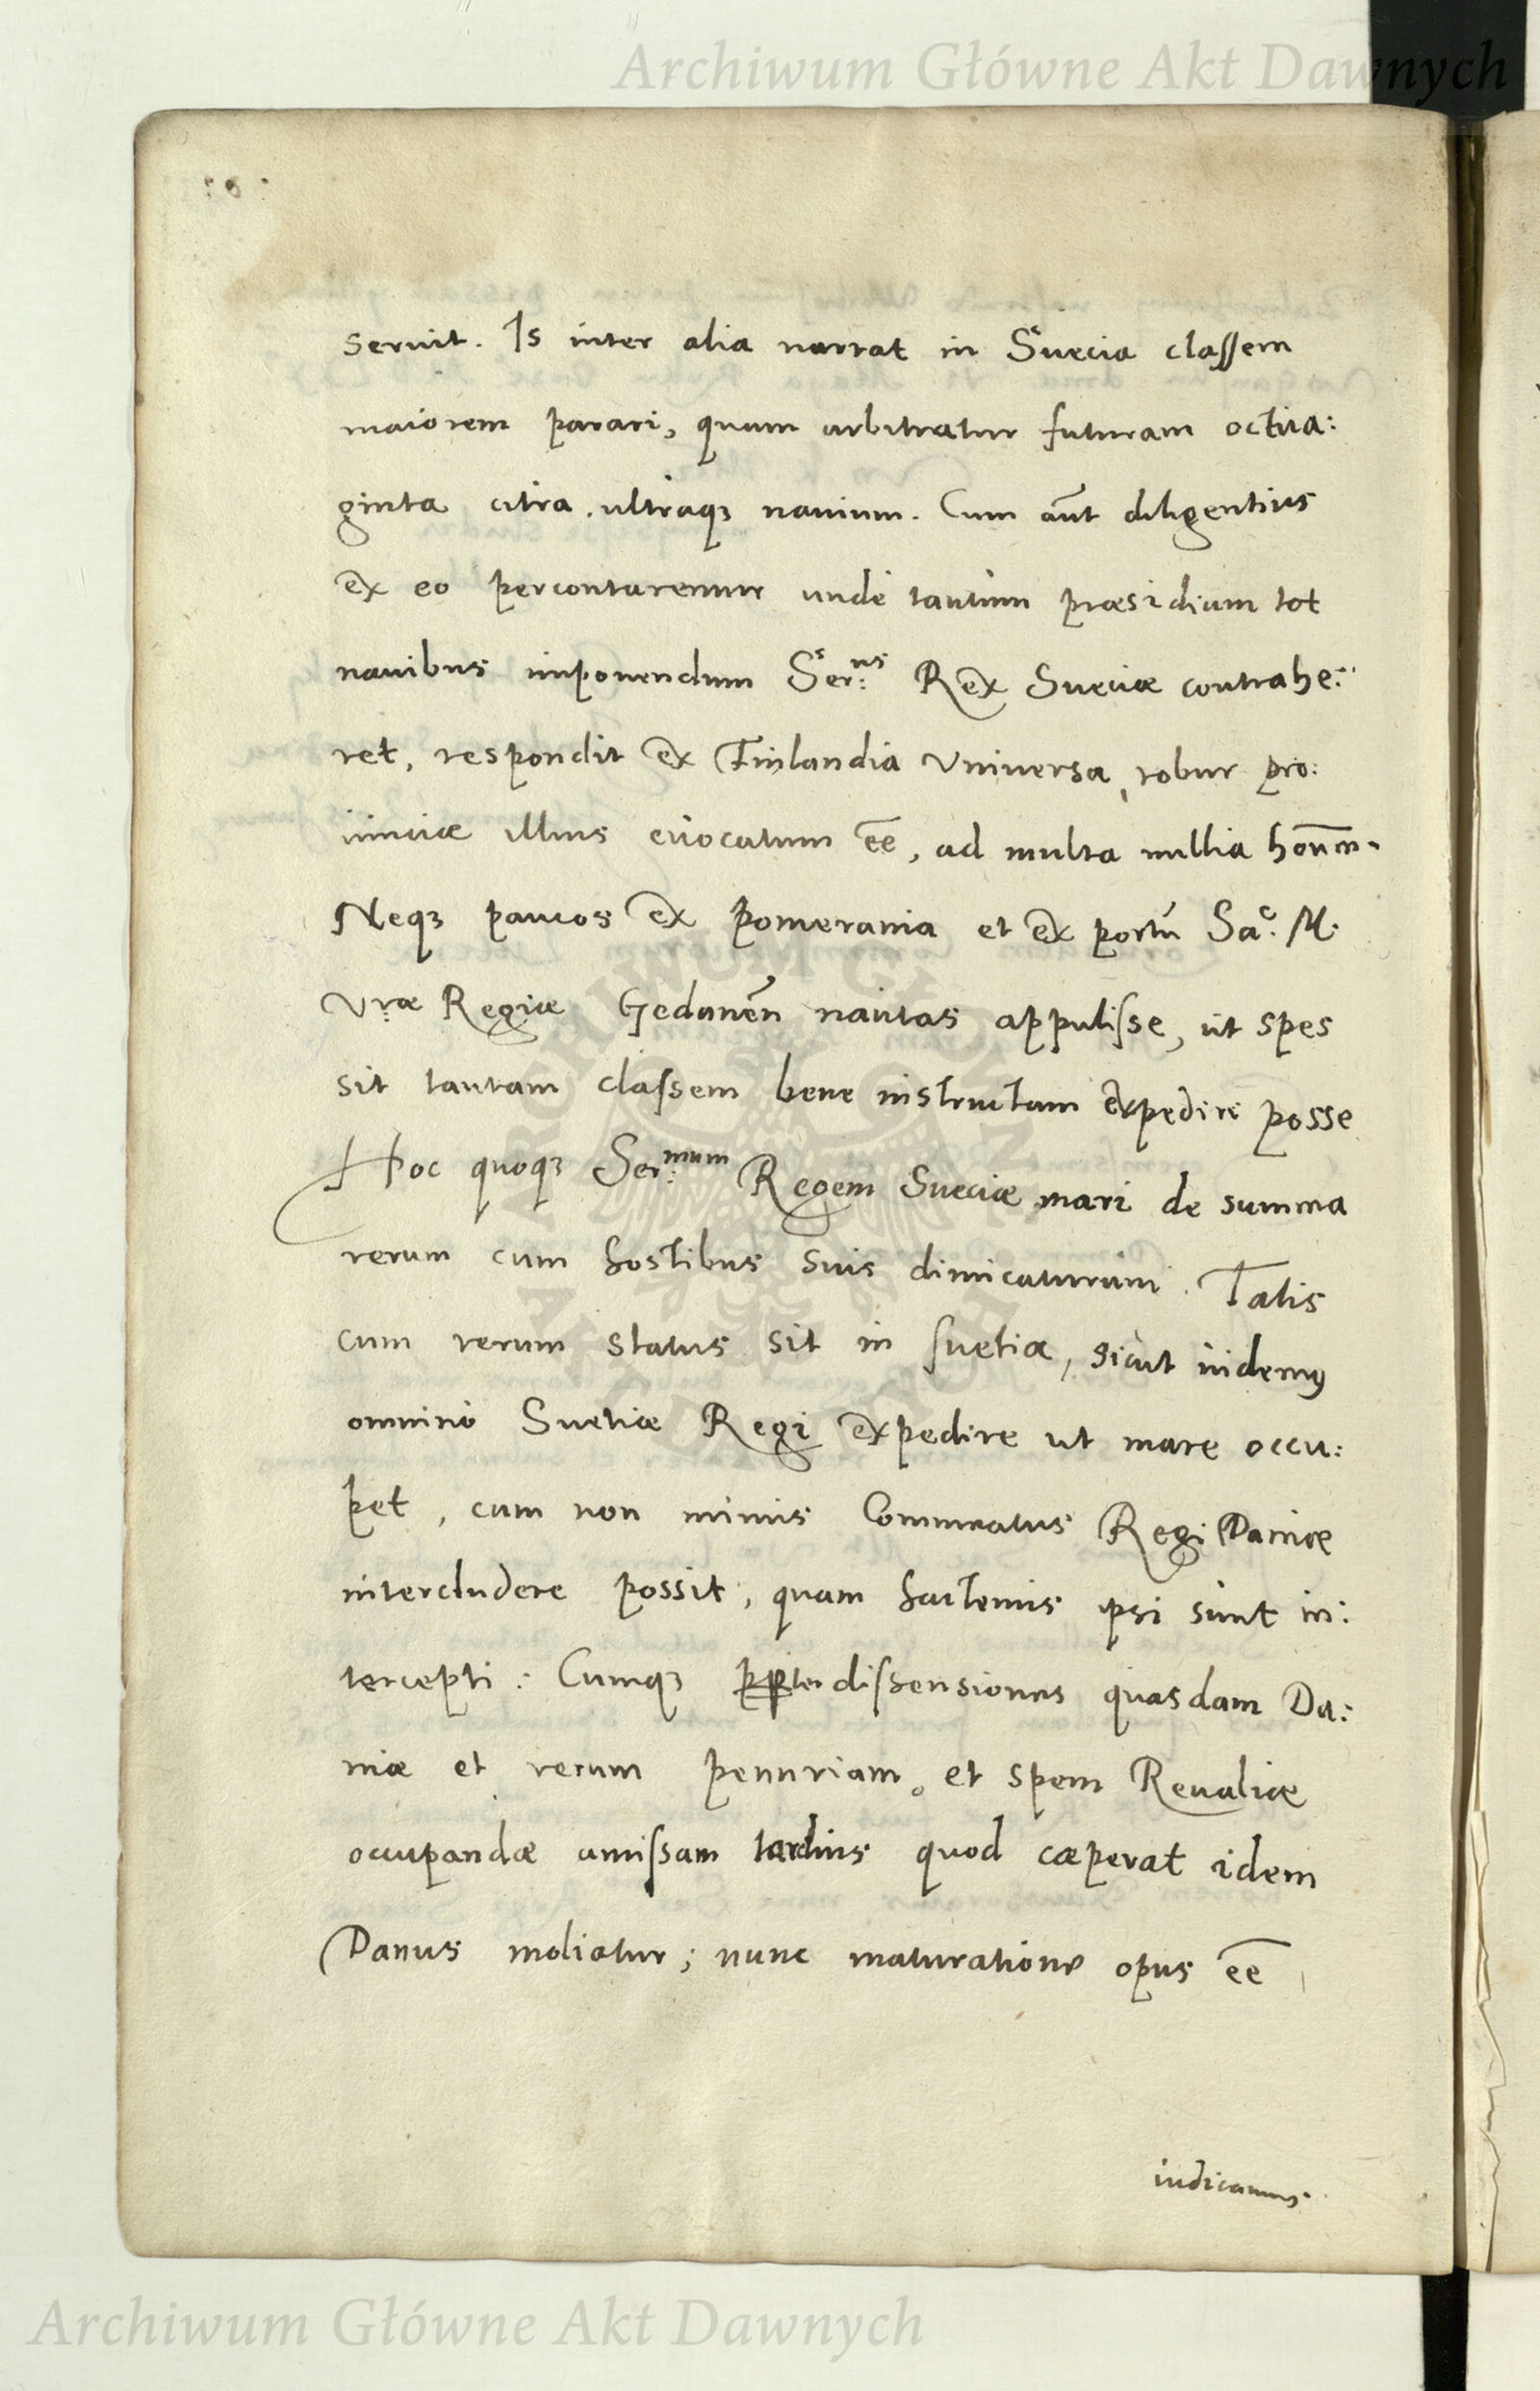 Archiwum Główne Akt Dawnych
seruit. Is inter alia narrat in Suecia classem
maiorem parari, quam arbitratur futuram octua:
ginta citra. ultraqꝫ nauium. Cum aūt diligentius
ex eo percontaremur unde tantum præsidium tot
nauibus imponendum Ser:ᵘˢ Rex Sueciæ contrahe:
ret, respondit ex Finlandia Vniuersa, robur pro:
uinciæ illius euocatum ēē, ad multa millia hoīm.
Neqꝫ paucos ex Pomerania et ex portu Saᶜ: M.
Vræ Regiæ Gedaneñ nautas appulisse, ut spes
sit tantam classem bene instructam expedire posse
Hoc quoqꝫ Ser:ᵐᵘᵐ Regem Sueciæ mari de summa
rerum cum hostibus suis dimicaturum. Talis
cum rerum status sit in suetia, sicut uidemꝰ
omnino Suetiæ Regi expedire ut mare occu:
pet, cum non minus Commeatus Regi Daniæ
intercludere possit, quam hactenus ipsi sunt in:
tercepti: Cumqꝫ ppter dissensiones quasdam Da:
niæ et rerum penuriam, et spem Reualiæ
occupandæ amissam tardius quod cæperat idem
Danus moliatur; nunc maturatione opus ēē
iudicamus.
Archiwum Główne Akt Dawnych